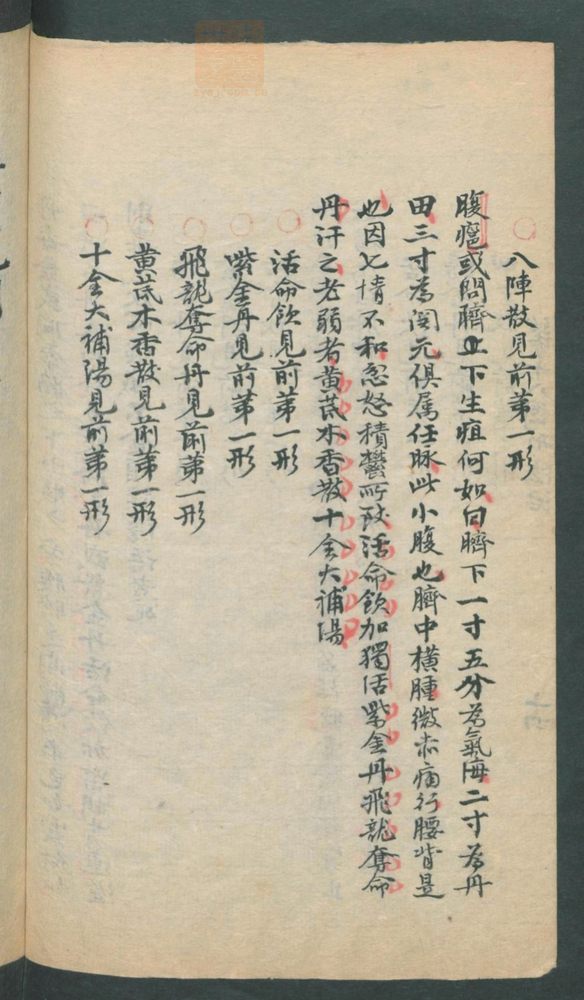 八陣散見前第一形
腹癰或問臍上下生疽何如曰臍下一寸五分為氣海二寸為丹
田三寸為関元俱属任脉此小腹也臍中橫腫微赤痛引腰背是
也因七情不和忿怒積鬱所致活命飲加獨活紫金丹飛龍奪命
丹汗之老弱者黄茋木香散十全大補湯
活命飲見前第一形
紫金丹見前第一形
飛龍奪命丹見前第一形
黄茋木香散見前第一形
十全大補湯見前第一形